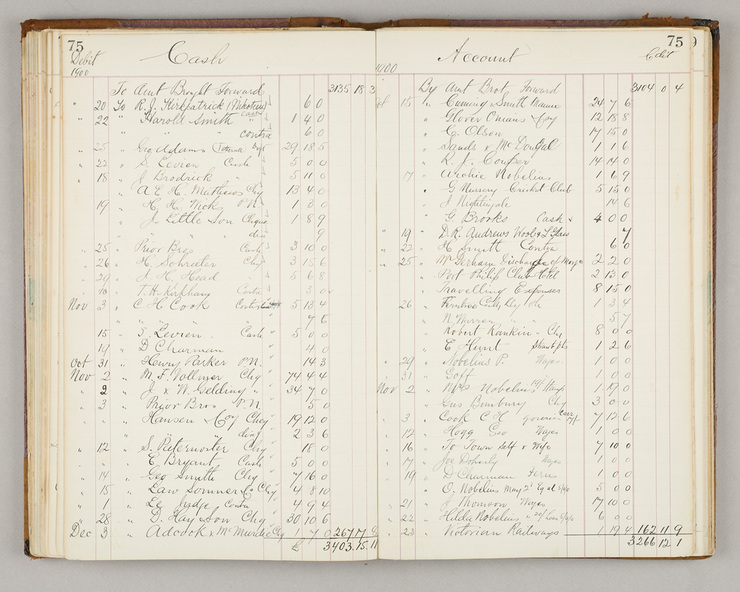 75
Debit
Cash
1900
To Amt Brought Forward 3135 18 3
" 20 To R. J. Kirkpatrick 6 0
" 22 " Harold Smith 1 4 0
" " contra 6 0
" 25 " Geo Adams 29 18 5
" 22 " S. Levien Cash 5 0 0
" 18 " J Brodrick 5 11 0
" A. E. H. Mathews Chq 13 4 0
" 19 " H. H. P.N. 1 3 0
" J. Little Son Cheque 1 8 9
" " dis 9
" 25 " Prior Bros Cash 3 10 0
" 26 " H. Schreiter Chq 3 15 6
" 29 " J. H. Head 6 8
" T. H. Contra
Nov 3 " C H Cook Contra 5 13 4
" " "
" 15 " S. Levien Cash 5 0 0
" 14 " D Charman 4 0
Oct 31 " Henry Parker P.N. 14 3
Nov 2 " M. F. Vollmer Chq 74 4 4
" 2 " J. & W. Gelding " 34 7 0
" 3 " Prior Bros P.N. 5 0
" Hansen & Coy Cheq 19 12 0
" " dis 2 3 6
" 12 " S. Paternoster Chq 18 0
" E. Bryant Cash 5 0 0
" 14 " Geo Smith Chq 7 16 0
" 15 " Law Somner & Co Chq 4 8 10
" 1 " Le Contra 4 9 4
" 28 " D. Hay & Son Chq 30 10 6
Dec 3 " Adcock & Chq 1 7 0 267 17
£ 3403 15 11
75
Account
Credit
1900
By Amt Brot Forward 3104 0 4
Oct 15 " Cuming Smith Manure 24 7 6
" Glover Onians & Coy 12 18 8
" C. Olson 17 15 0
" Sands & McDougal 1 1 6
" R. J. 14 14 0
" 17 " Archie Nobelius 1 6 9
" G Nursery Cricket Club 5 15 0
" J Nightingale 14 6
" G Brooks Cash 4 0 0
" 19 " D. R. Andrews 7
" 22 " H Smith Contra 6 0
" 25 " Discharge of 2 2 0
" Port Philip Club Hotel 2 13 0
" Travelling Expenses 8 15 0
" 26 " 1 3 4
" N. 5 7
" Robert Rankin Chq 8 0 0
" E Hunt 1 2 6
" 29 " Nobelius P. Wages 1 0 0
" 31 " Golf 1 0 0
Nov 2 " Mrs Nobelius 1 19 0
" Gus Bunbury Chq 3 0 0
" 3 " Cook C H 7 12 6
" 12 " Hogg Geo Wages 1 0 0
" 16 " To Town Self & Wife 7 10 0
" 17 " Joe Doherty Wages 1 0 0
" 19 " D Charman Ferns 1 0 0
" C. Nobelius 5 0 0
" 21 " J Thomson Wages 7 10 0
" 22 " Hilda Nobelius 6 0 0
" 23 " Victorian Railways 1 19 4 162 11 9
3266 12 1